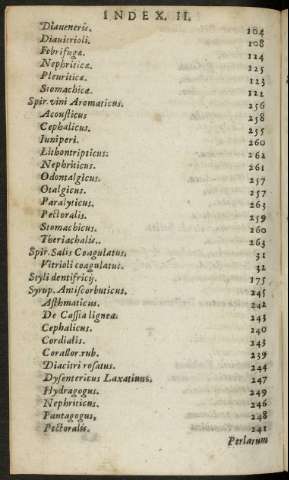 INDEX. II.
Diaveneris. 104
Diavitrioli. 108
Febrifugæ. 114
Nephriticæ. 125
Pleuriticæ. 123
Stomachicæ. 121
Spir. vini Aromaticus. 256
Acousticus 258
Cephalicus. 255
Iuniperi. 260
Lithontripticus: 262
Nephriticus. 261
Odontalgicus. 257
Otalgicus. 257
Paralyticus. 263
Pectoralis. 259
Stomachicus. 260
Theriachalis.. 263
Spir. Salis Coagulatus. 31
Vitrioli coagulatus. 32
Styli dentifricij. 175
Syrup. Antiscorbuticus. 245
Asthmaticus. 242
De Cassia lignea. 243
Cephalicus. 240
Cordialis. 243
Corallor. rub. 239
Diacitri rosatus. 244
Dysentericus Laxativus. 247
Hydragogus. 249
Nephriticus. 246
Pantagogus. 248
Pectoralis. 241
Perlarum